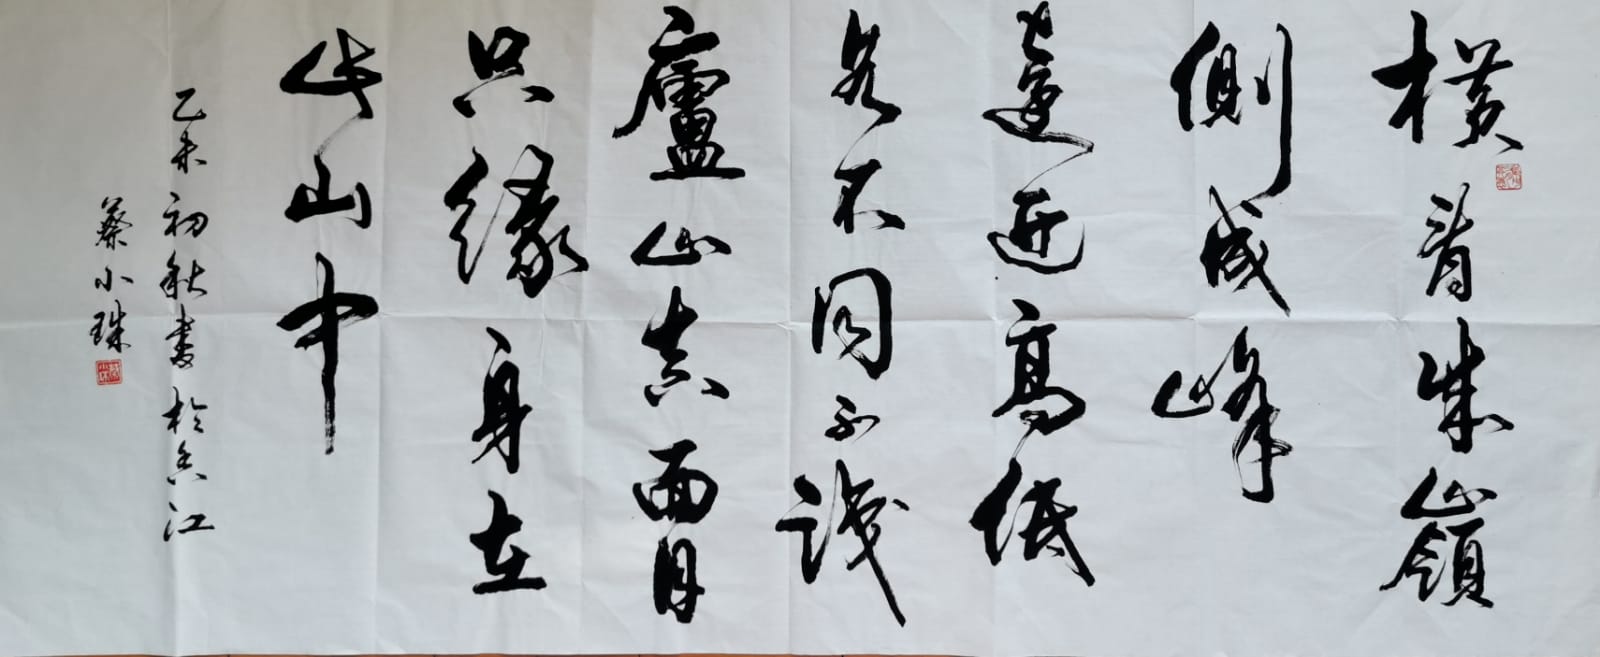 橫看成嶺
側成峰
遠近高低
各不同不識
廬山真面目
只緣身在
此山中
乙未初秋書於香江
蔡小珠